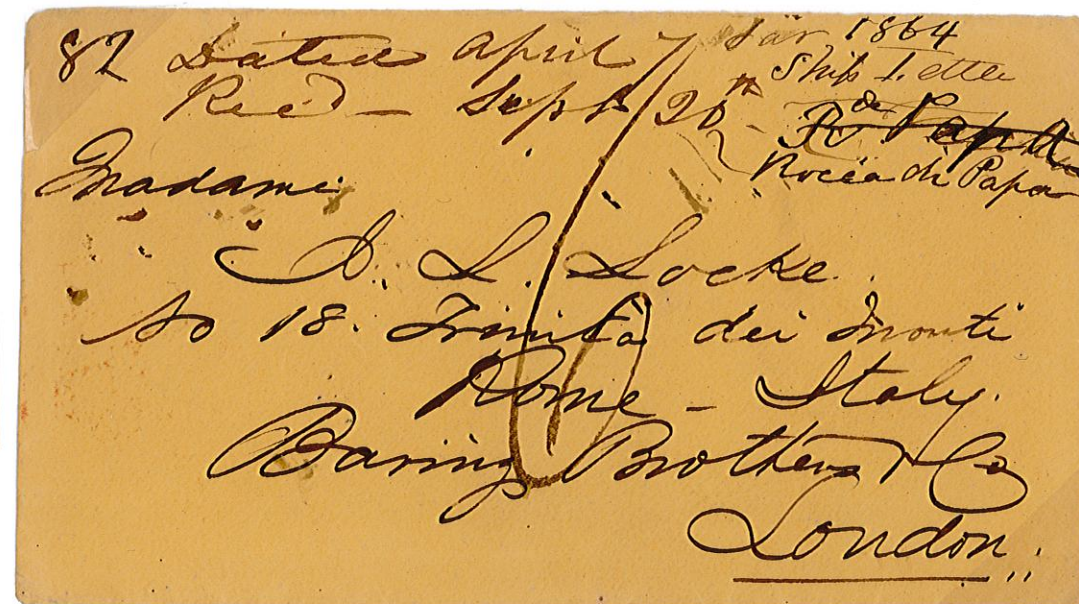 82 Dated April 7 1864
Ship Letter
Recd - Sept 20th - R de Papa
Rocca di Papa
Madame
A. L. Locke
No 18. Trinità dei Monti
Rome - Italy.
Baring Brothers & Co
London.
6